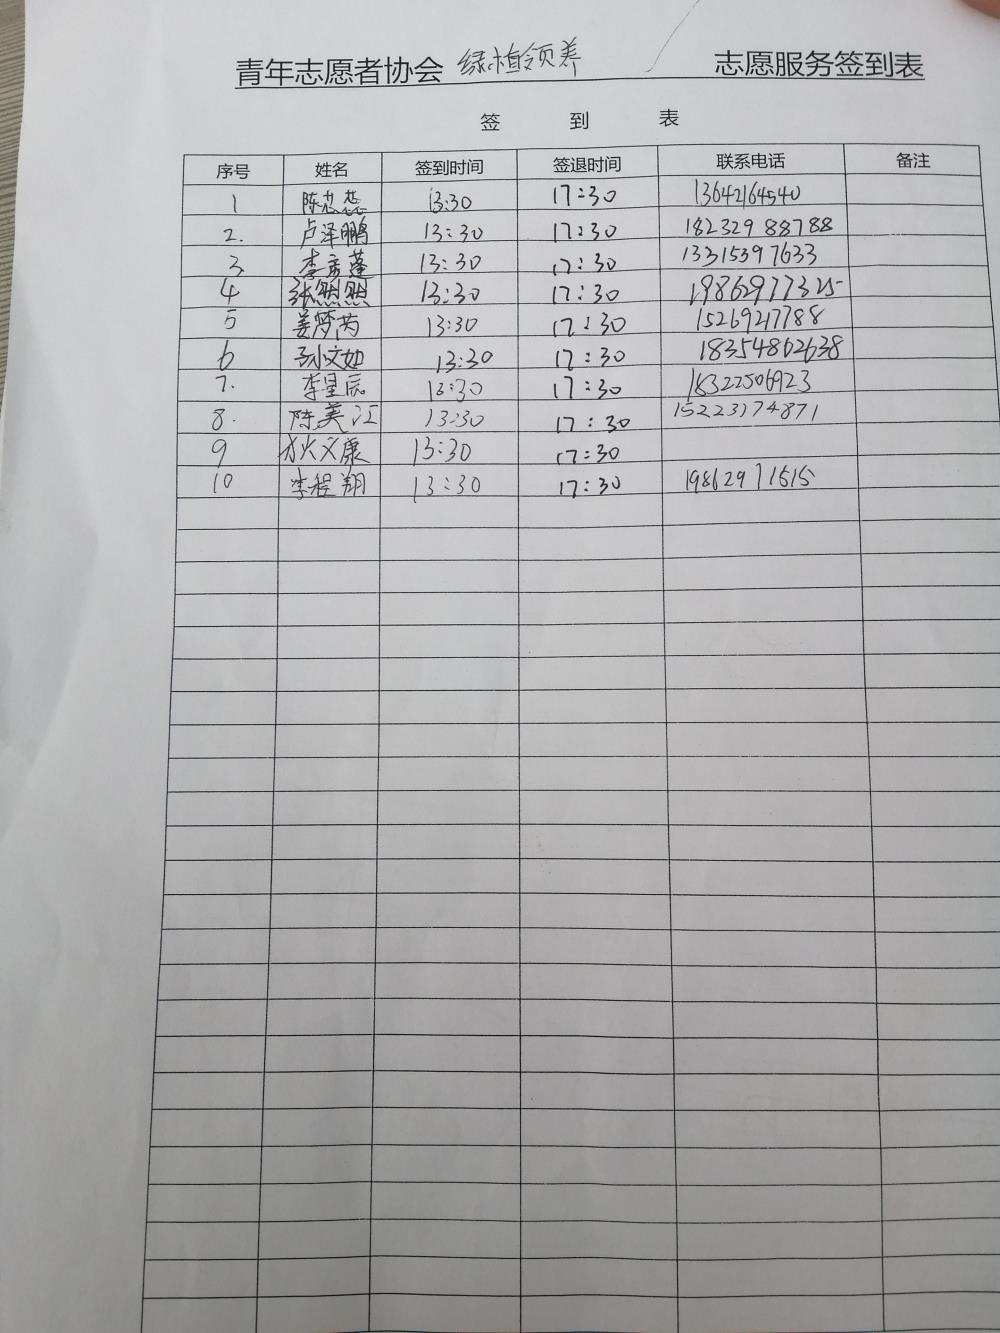 青年志愿者协会 绿植领养 志愿服务签到表
签 到 表
序号 姓名 签到时间 签退时间 联系电话 备注
1 陈芯蕊 13:30 17:30 13642164540
2. 卢泽鹏 13:30 17:30 18232988788
3 李彦蓬 13:30 17:30 13315397633
4 张熙熙 13:30 17:30 19862977325
5 姜梦芮 13:30 17:30 1526927788
6 孙文如 13:30 17:30 18354862638
7. 李星辰 13:30 17:30 18322506923
8. 陈美江 13:30 17:30 15223174871
9 狄文康 13:30 17:30
10 李程翔 13:30 17:30 19862971515